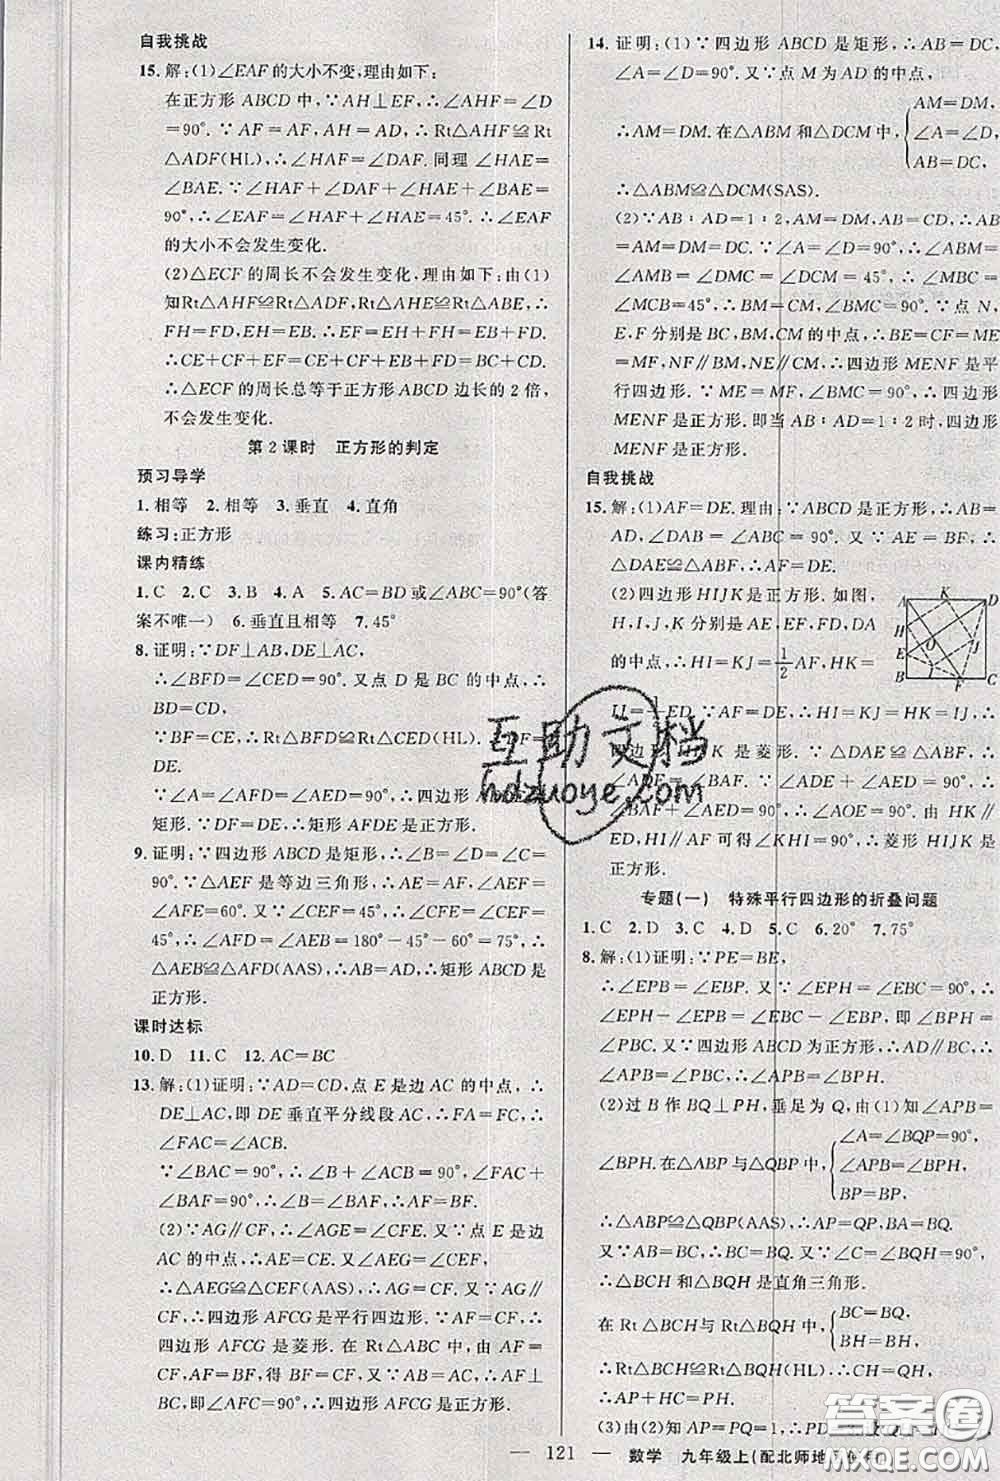 自我挑战
15. 解:(1)∠EAF的大小不变,理由如下:
在正方形 ABCD 中,∵AH⊥EF,∴∠AHF=∠D
=90°. ∵AF=AF,AH=AD,∴Rt△AHF≌Rt
△ADF(HL). ∴∠HAF=∠DAF. 同理 ∠HAE=
∠BAE. ∵∠HAF+∠DAF+∠HAE+∠BAE=
90°,∴∠EAF=∠HAF+∠HAE=45°. ∴∠EAF
的大小不会发生变化.
(2)△ECF的周长不会发生变化,理由如下:由(1)
知Rt△AHF≌Rt△ADF,Rt△AHE≌Rt△ABE,∴
FH=FD,EH=EB. ∴EF=EH+FH=EB+FD.
∴CE+CF+EF=CE+CF+EB+FD=BC+CD.
∴△ECF的周长总等于正方形ABCD 边长的2倍,
不会发生变化.
第2课时 正方形的判定
预习导学
1. 相等 2. 相等 3. 垂直 4. 直角
练习:正方形
课内精练
1. C 2. C 3. B 4. A 5. AC=BD或∠ABC=90°(答
案不唯一) 6. 垂直且相等 7. 45°
8. 证明:∵DF⊥AB,DE⊥AC,
∴∠BFD=∠CED=90°. 又点 D 是 BC 的中点,∴
BD=CD,
∵BF=CE,∴Rt△BFD≌Rt△CED(HL). ∴DF=
DE.
∵∠A=∠AFD=∠AED=90°,∴四边形 AFDE
矩形. ∵DF=DE,∴矩形 AFDE 是正方形.
9. 证明:∵四边形 ABCD 是矩形,∴∠B=∠D=∠C=
90°. ∵△AEF 是等边三角形,∴AE=AF,∠AEF=
∠AFE=60°. 又∵∠CEF=45°,∴∠CFE=∠CEF=
45°,∴∠AFD=∠AEB=180°-45°-60°=75°,∴
△AEB≌△AFD(AAS),∴AB=AD,∴矩形ABCD是
正方形.
课时达标
10. D 11. C 12. AC=BC
13. 解:(1)证明:∵AD=CD,点 E 是边 AC 的中点,∴
DE⊥AC,即 DE 垂直平分线段 AC,∴FA=FC,∴
∠FAC=∠ACB.
∵∠BAC=90°,∴∠B+∠ACB=90°,∠FAC+
∠BAF=90°,∴∠B=∠BAF,∴AF=BF.
(2)∵AG∥CF,∴∠AGE=∠CFE. 又∵点 E 是边
AC 的中点,∴AE=CE. 又∠AEG=∠CEF,
∴△AEG≌△CEF(AAS),∴AG=CF. 又 AG∥
CF,∴四边形 AFCG 是平行四边形. ∵AF=CF,∴
四边形 AFCG 是菱形. 在 Rt△ABC 中,由 AF=
CF,AF=BF,得 BF=CF,又 AB=AC,∴
AF⊥BC. ∴四边形 AFCG 是正方形.
14. 证明:(1)∵四边形 ABCD 是矩形,∴AB=DC,
∠A=∠D=90°. 又∵点 M 为 AD 的中点,
∴AM=DM. 在△ABM 和△DCM 中,
AM=DM,
∠A=∠D,
AB=DC,
∴△ABM≌△DCM(SAS).
(2)∵AB:AD=1:2,AM=DM,AB=CD,∴AB
=AM=DM=DC. ∵∠A=∠D=90°,∴∠ABM=
∠AMB=∠DMC=∠DCM=45°,∴∠MBC=
∠MCB=45°,∴BM=CM,∠BMC=90°. ∵点 N,
E,F 分别是BC,BM,CM的中点,∴BE=CF=ME
=MF,NF∥BM,NE∥CM,∴四边形 MENF是平
行四边形. ∵ME=MF,∠BMC=90°,∴四边形
MENF 是正方形. 即当 AB:AD=1:2时,四边形
MENF 是正方形.
自我挑战
15. 解:(1)AF=DE. 理由:∵ABCD是正方形,∴AB=
AD,∠DAB=∠ABC=90°. 又∵AE=BF,∴
△DAE≌△ABF,∴AF=DE.
(2)四边形 HIJK 是正方形. 如图,
H,I,J,K 分别是 AE,EF,FD,DA
的中点,∴HI=KJ=1/2AF,HK=
IJ=1/2ED. ∵AF=DE,∴HI=KJ=HK=IJ,∴
四边形 HIJK 是菱形. ∵△DAE≌△ABF,∴
∠ADE=∠BAF. ∵∠ADE+∠AED=90°,∴
∠BAF+∠AED=90°,∴∠AOE=90°. 由 HK∥
ED,HI∥AF 可得∠KHI=90°,∴菱形 HIJK 是
正方形.
A K D
H O J
E
B F C
专题(一) 特殊平行四边形的折叠问题
1. C 2. D 3. C 4. D 5. C 6. 20° 7. 75°
8. 解:(1)证明:∵PE=BE,
∴∠EPB=∠EBP. 又∵∠EPH=∠EBC=90°,∴
∠EPH-∠EPB=∠EBC-∠EBP,即∠BPH=
∠PBC. 又∵四边形 ABCD 为正方形,∴AD∥BC,∴
∠APB=∠PBC,∴∠APB=∠BPH.
(2)过 B 作 BQ⊥PH,垂足为 Q,由(1)知∠APB=
∠BPH. 在△ABP与△QBP中,
∠A=∠BQP=90°,
∠APB=∠BPH,
BP=BP,
∴△ABP≌△QBP(AAS),∴AP=QP,BA=BQ.
又∵AB=BC,∴BC=BQ. 又∵∠C=∠BQH=90°,
∴△BCH 和△BQH 是直角三角形.
在 Rt△BCH与 Rt△BQH中,
BC=BQ,
BH=BH,
∴Rt△BCH≌Rt△BQH(HL),∴CH=QH,
∴AP+HC=PH.
(3)由(2)知 AP=PQ=1,∴PD
— 121 — 数学 九年级上(配北师地
互助文档
hdzuoye.com
答案圈
MXQE.COM